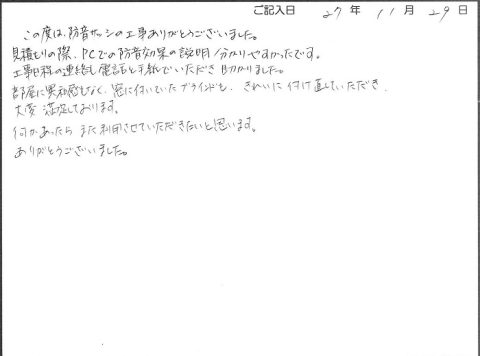 ご記入日 27 年 11 月 29 日
この度は、防音サッシの工事ありがとうございました。
見積もりの際、PCでの防音効果の説明分かりやすかったです。
工事日程の連絡も電話と手紙でいただき助かりました。
部屋に異和感もなく、窓に付いていたブラインドも、きれいに付け直していただき、
大変満足しております。
何かあったらまた利用させていただきたいと思います。
ありがとうございました。